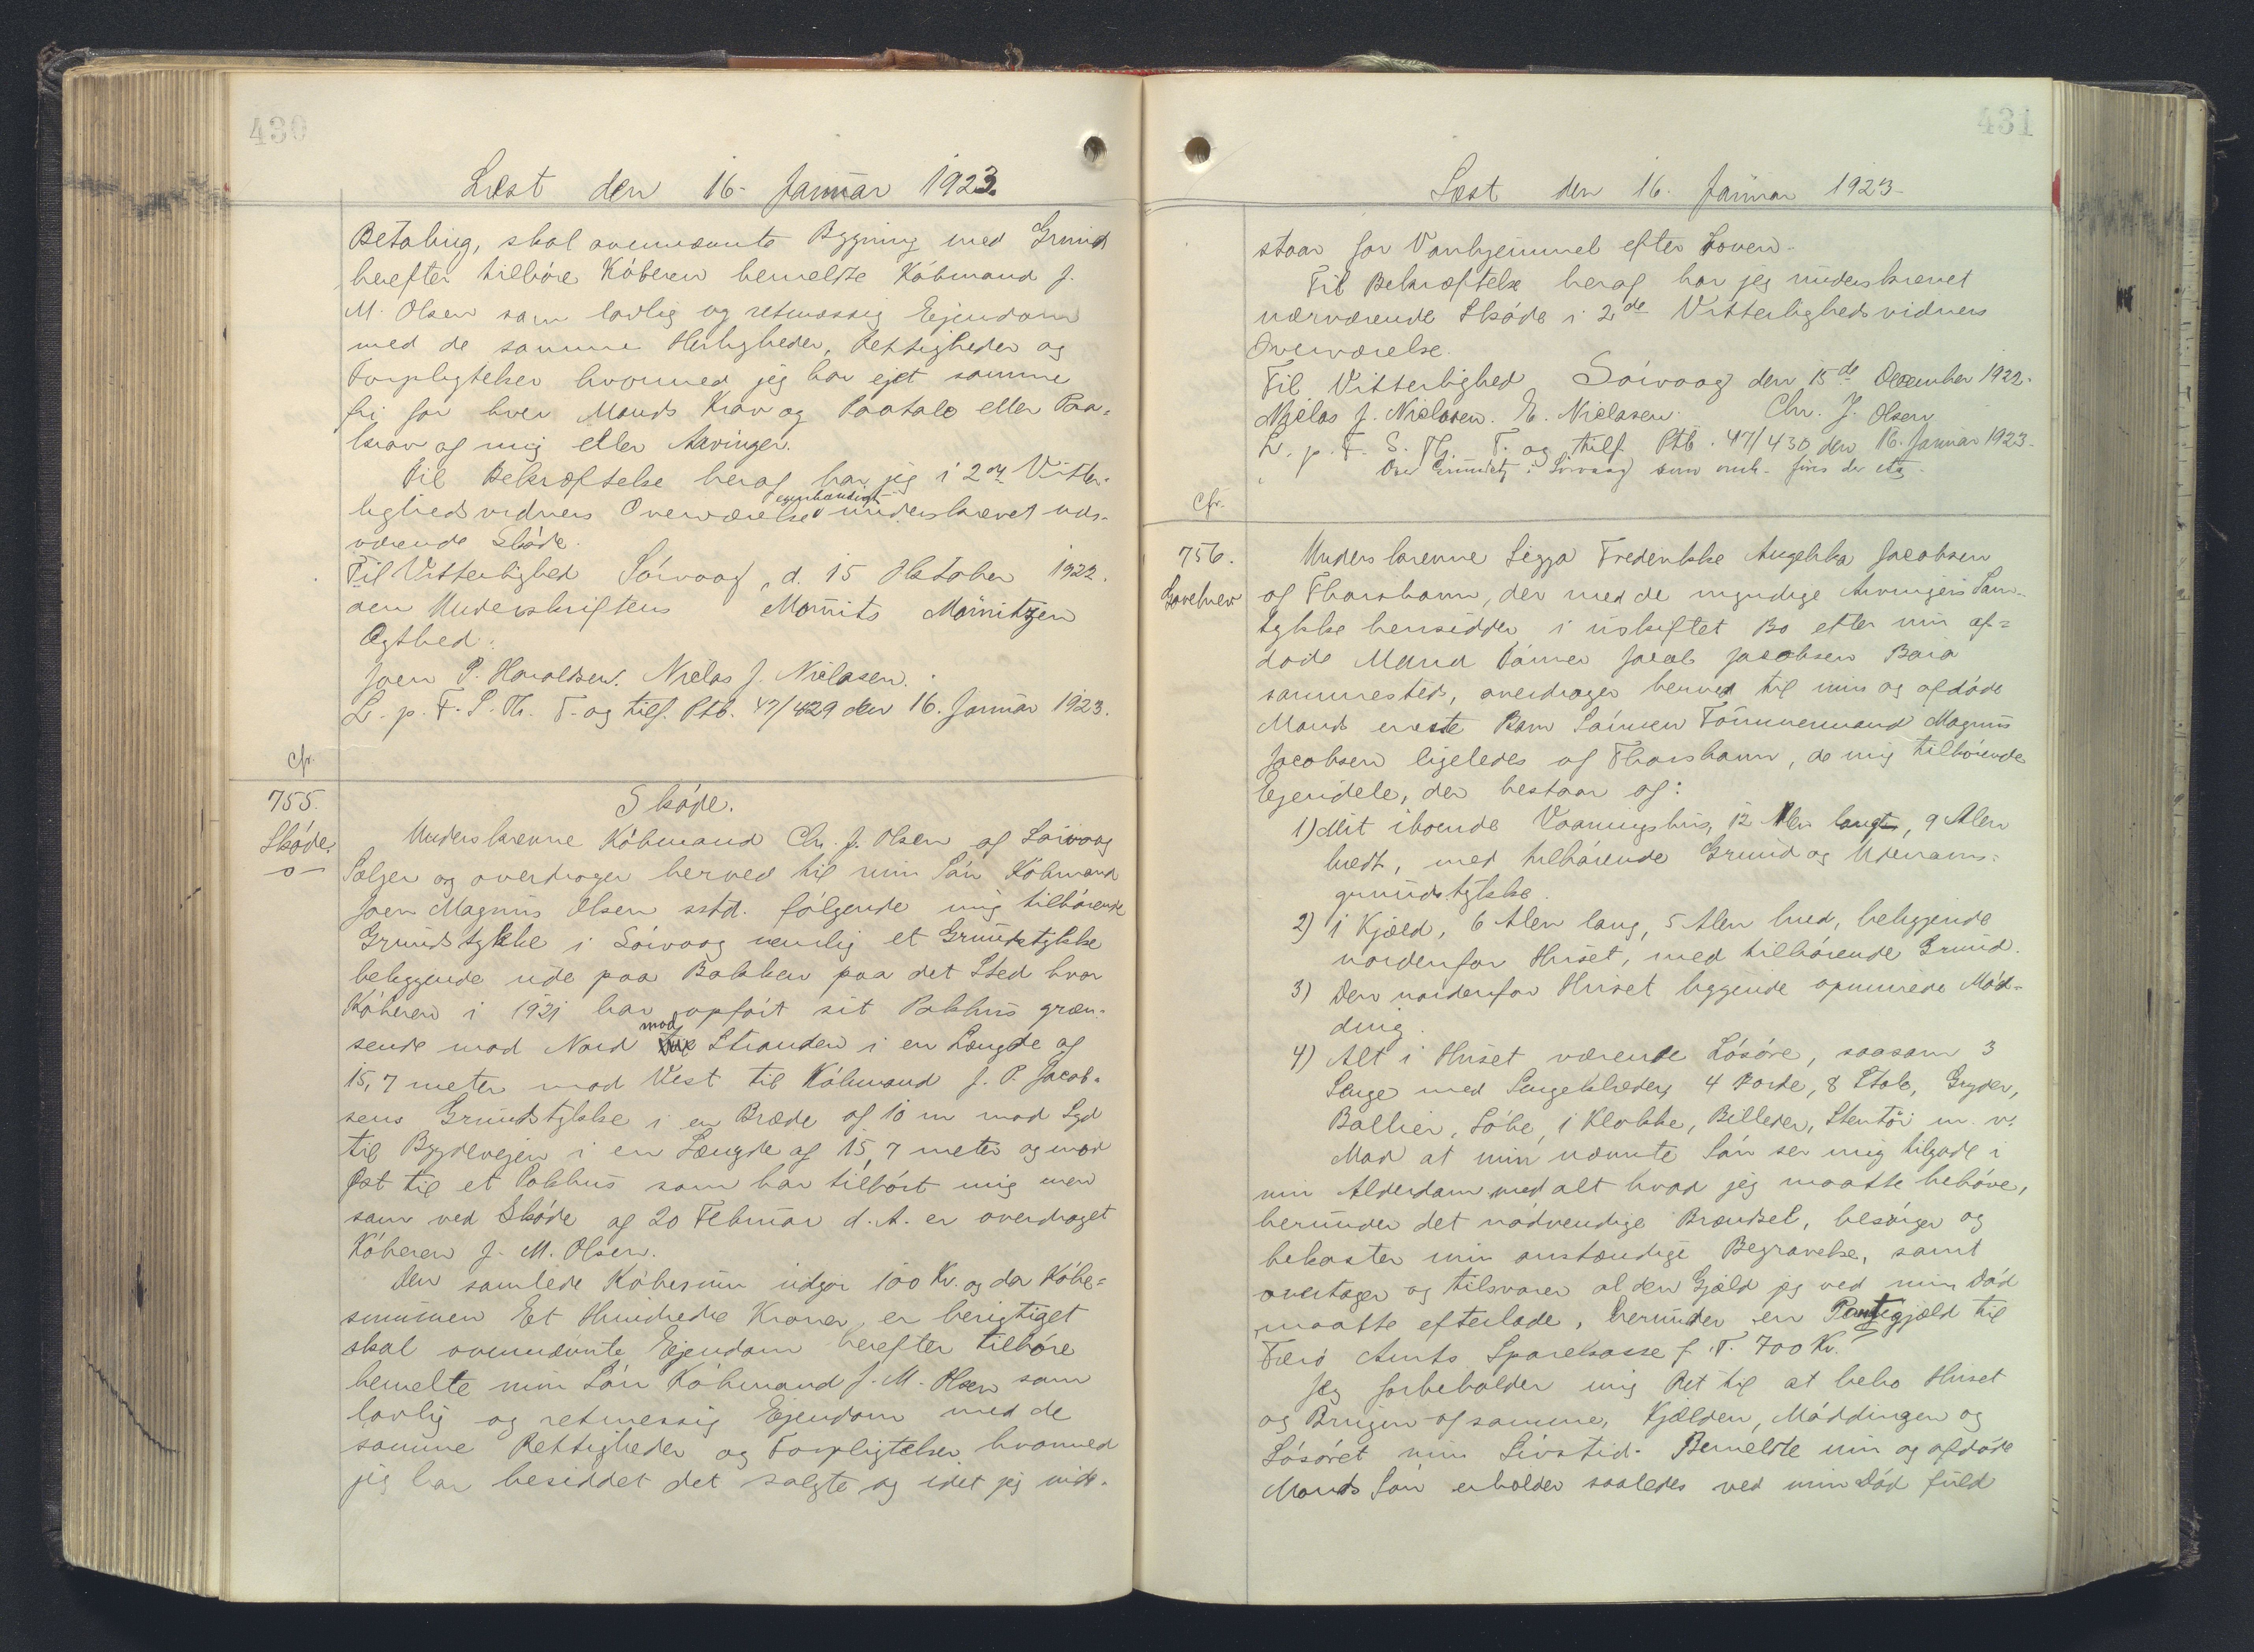 430
Læst den 16. Januar 1923.
Betaling, skal ovennævnte Bygning med Grund
herefter tilhöre Köberen bemeldte Köbmand J.
M. Olsen som lovlig og retmæssig Ejendom
med de samme Herligheder, Rettigheder og
Forpligtelser hvormed jeg har ejet samme
fri for hver Mands Krav og Paatale eller Paa-
krav af mig eller Arvinger.
Til Bekræftelse heraf har jeg i 2de Vitter-
lighedsvidners Overværelse egenhændigt underskrevet nær-
værende Sköde.
Til Vitterlighed Sörvaag, d. 15 Oktober 1922.
om Underskriftens Mourits Mouritzen
Ægthed:
Joen P. Haraldsen. Nielas J. Nielasen.
L. p. F. S. Th. T. og tilf. Ptb. 47/429 den 16. Januar 1923.
Cfr.
755.
Sköde.
Sköde.
Underskrevne Köbmand Chr. J. Olsen af Sörvaag
Sælger og overdrager herved til min Sön Köbmand
Joen Magnus Olsen sstd. fölgende mig tilhörende
Grundstykke i Sörvaag nemlig et Grundstykke
beliggende ude paa Bakken paa det Sted hvor
Köberen i 1921 har opfört sit Pakhus græn-
sende mod Nord mod Stranden i en Længde af
15,7 meter mod Vest til Köbmand J. P. Jacob-
sens Grundstykke i en Brede af 10 m mod Syd
til Bygdevejen i en Længde af 15,7 meter og mod
Øst til et Pakhus som har tilhört mig men
som ved Sköde af 20 Februar d. A. er overdraget
Köberen J. M. Olsen.
Den samlede Köbesum udgör 100 Kr. og da Köbe-
summen Et Hundrede Kroner er berigtiget
skal ovennævnte Ejendom herefter tilhöre
bemeldte min Sön Köbmand J. M. Olsen som
lovlig og retmessig Ejendom med de
samme Rettigheder og Forpligtelser hvormed
jeg har besiddet det solgte og idet jeg inde-
431
Læst den 16. Januar 1923
staar for Vanhjemmel efter Loven.
Til Bekræftelse heraf har jeg underskrevet
nærværende Sköde i 2de Vitterlighedsvidners
Overværelse.
Til Vitterlighed Sörvaag den 15de December 1922.
Nielas J. Nielasen. E. Nielasen. Chr. J. Olsen
L. p. F. S. Th. T. og tilf. Ptb. 47/430 den 16. Januar 1923.
i Sörvaag som omh.
Cfr.
756.
Gavebrev
Underskrevne Sigga Frederikke Angelika Jacobsen
af Thorshavn, der med de myndige Arvingers Sam-
tykke hensidder i uskiftet Bo efter min af-
döde Mand Jacob Jacobsen
sammesteds, overdrager herved til min og afdöde
Mands eneste Barn Sönnen Tömmermand Magnus
Jacobsen ligeledes af Thorshavn, de mig tilhörende
Ejendele, der bestaar af:
1) Mit iboende Vaaningshus, 12 Alen langt, 9 Alen
bredt, med tilhörende Grund og Udenoms-
grundstykke.
2) 1 Kjæld, 6 Alen lang, 5 Alen bred, beliggende
nordenfor Huset, med tilhörende Grund.
3) Den nordenfor Huset liggende opmurede Möd-
ding.
4) Alt i Huset værende Lösöre, saasom 3
Senge med Sengeklæder, 4 Borde, 8 Stole, Gryder,
Baller, 1 Klokke, Billeder, Stentöi m. v.
Mod at min nævnte Sön ser mig tilgode i
min Alderdom med alt hvad jeg maatte behöve,
herunder det nödvendige Brændsel, besörger og
bekoster min anstændige Begravelse, samt
overtager og tilsvarer al den Gjæld jeg ved min Död
maatte efterlade, herunder en Pantegjæld til
Færö Amts Sparekasse f. T. 700 Kr.
Jeg forbeholder mig Ret til at bebo Huset
og Brugen af samme, Kjælden, Möddingen og
Lösöret min Livstid. Bemeldte min og afdöde
Mands Sön erholder saaledes ved min Död fuld